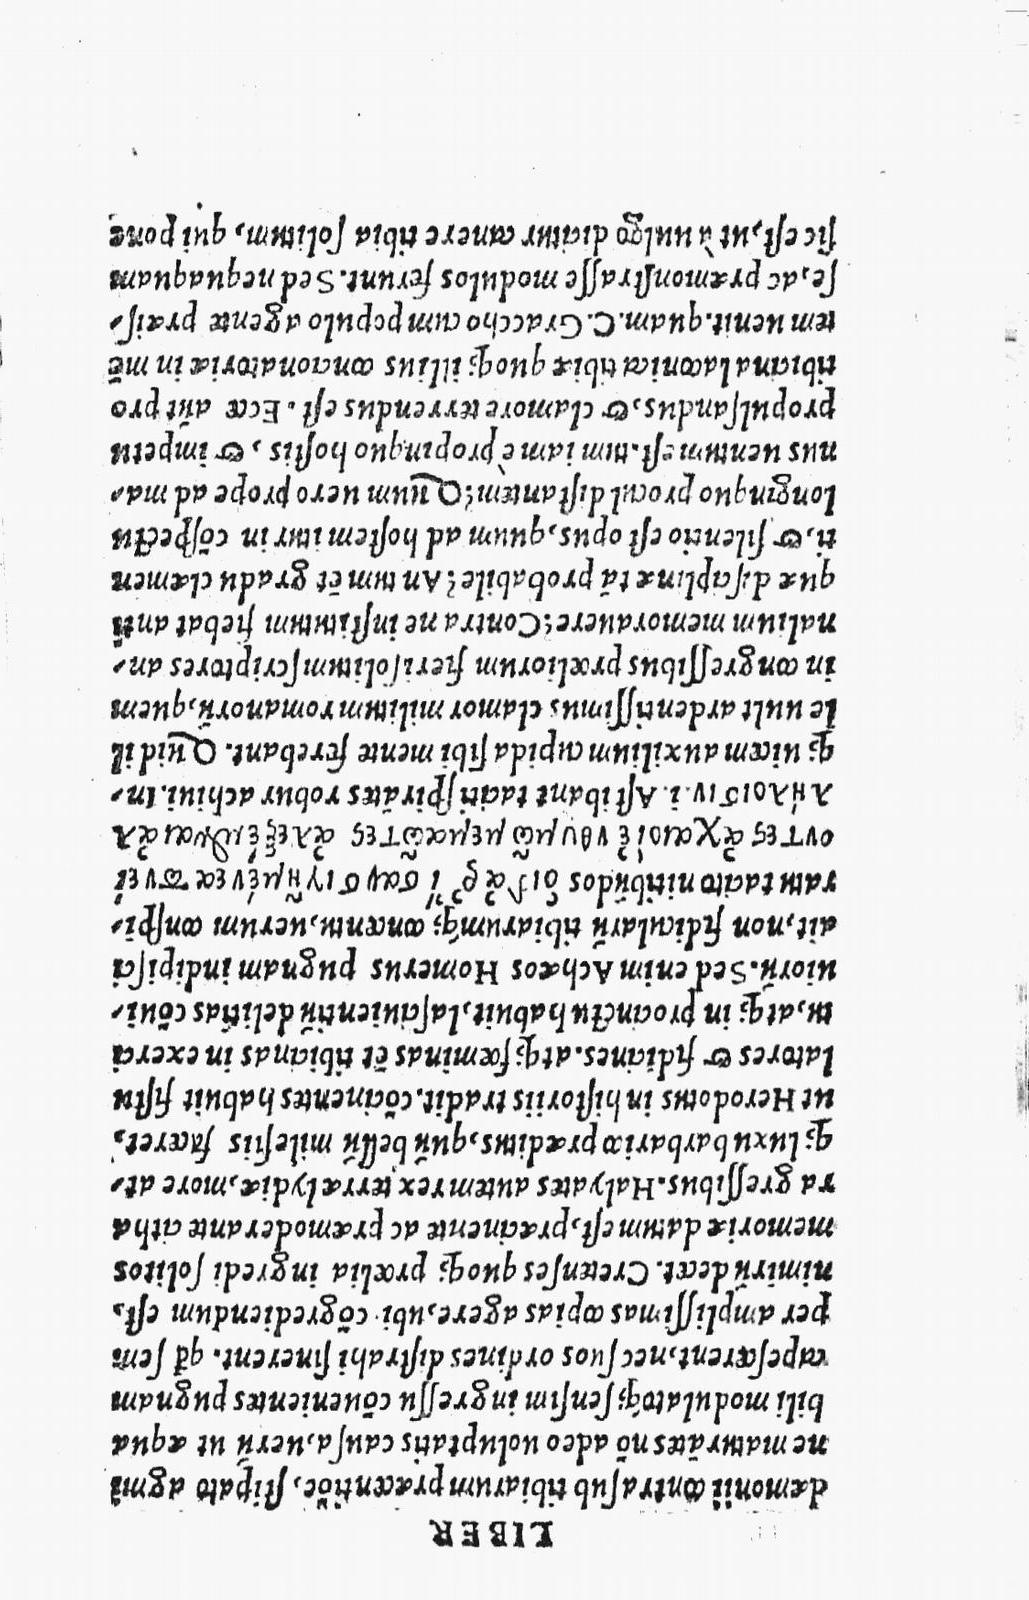 LIBER
dæmonii cōntra sub tibiarum præcentiōe, stipato agmī
ne maturātes nō adeo uoluptatis causa, uerū ut æqua
bili modulatoq; sensim ingressu cōuenientes pugnam
capescerent, nec suos ordines distrahi sinerent. qd sem
per amplissimas copias agere, ubi cōgrediendum est,
nimirū decat. Cretenses quoq; prœlia ingredi solitos
memoriæ datum est, præcinente ac præmoderante citha
ra gressibus. Halyates autem rex terræ lydiæ, more at-
q; luxu barbarico præditus, quū bellū milesiis faceret,
ut Herodotus in historiis tradit. cōcinentes habuit fistu
latores & fidicines. atq; fœminas ēt tibicinas in exerci
tu, atq; in procinctu habuit, lasciuientiū delitias cōui-
uiorū. Sed enim Achæos Homerus pugnam indipisci
ait, non ficulularū tibiarumq; concentu, uerum conspi-
ratu tacito nitibūdos οἱ δ' ἄρ' ἴσαν σιγῇ μένεα πνεί
οντες ἀχαιοὶ ἐν θυμῷ μεμαῶτες ἀλεξέμεναι ἀλ
λήλοισιν. i. Astibant taciti spirātes robur achiui. In-
q; uicem auxilium cupida sibi mente ferebant. Quid il
le uult ardentissimus clamor militum romanorū, quem
in congressibus prœliorum fieri solitum scriptores an-
nalium memorauere? Contra ne institutum fiebat anti
quæ disciplinæ tā probabile? An tum ēt gradu clemen
ti, & silentio est opus, quum ad hostem itur in cōspectu
longinquo procul distantem? Quum uero prope ad ma-
nus uentum est. tum iam è propinquo hostis, & impetu
propulsandus, & clamore terrendus est. Ecce aūt pro
tibicina laconica tibiæ quoq; illius concionatoriæ in mē
tem uenit. quam. C. Graccho cum populo agente præis-
se, ac præmonstrasse modulos ferunt. Sed nequaquam
sic est, ut à uulgo dicitur canere tibia solitum, qui pone